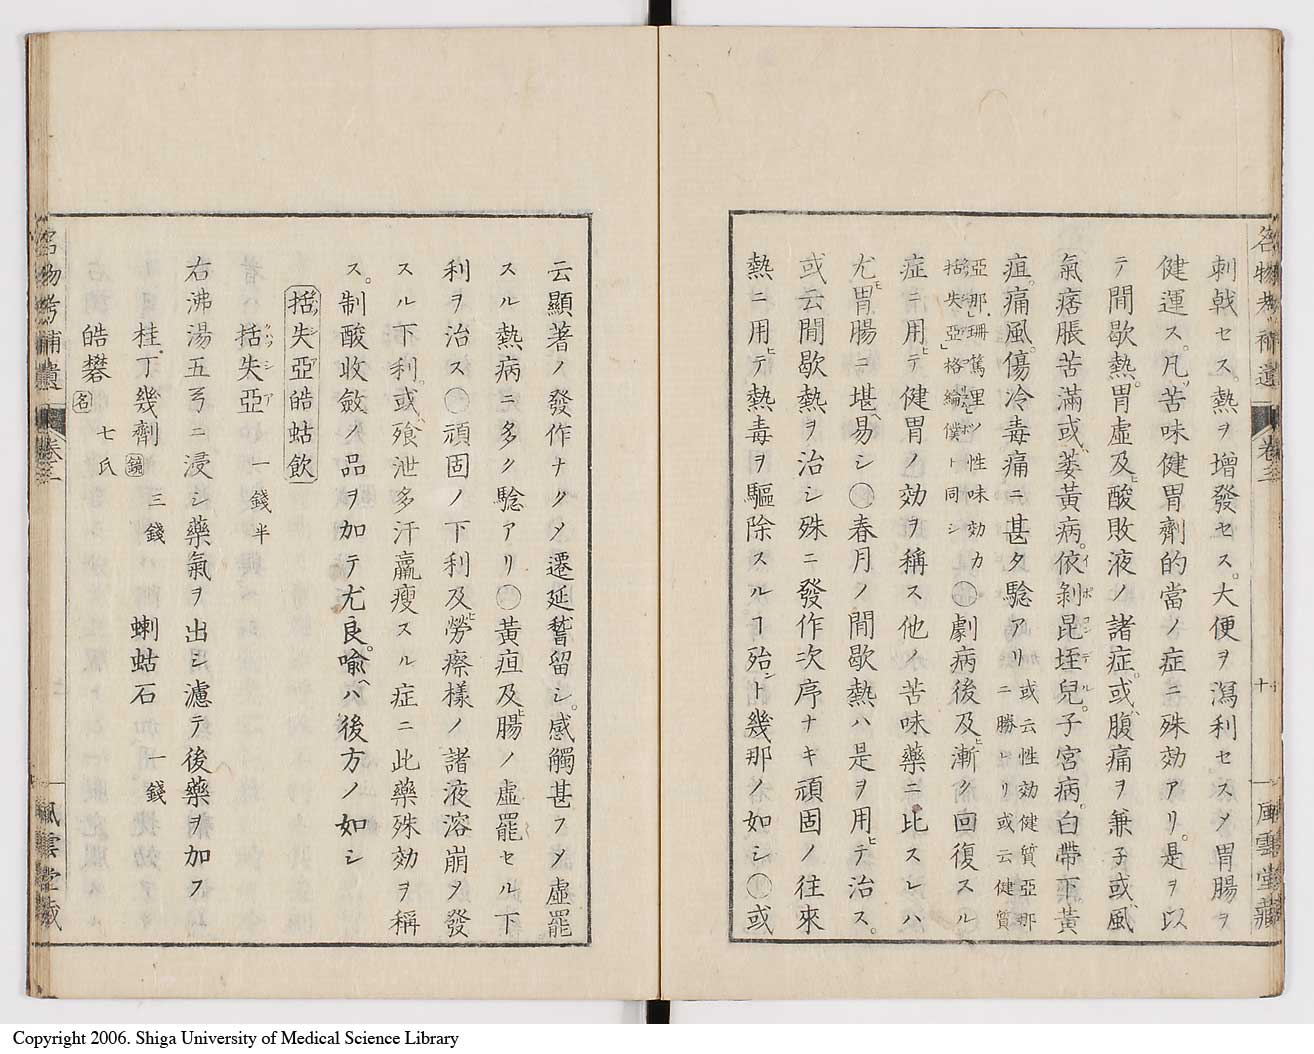 名物考補遺 卷三 十 風雲堂藏
刺戟セス。熱ヲ増發セス。大便ヲ瀉利セスメ胃腸ヲ
健運ス。凡ソ苦味健胃劑的當ノ症ニ殊効アリ。是ヲ以
テ間歇熱。胃虛及ヒ酸敗液ノ諸症。或ハ腹痛ヲ兼子或ハ風
氣痞脹苦滿或ハ萎黃病。依剝昆垤兒。子宮病。白帶下黃
疸痛風。傷冷毒痛ニ甚タ騐アリ 或云性効健質亞那ニ勝レリ或云健質
亞那。珊篤里ノ性味効力括失亞格綸僕ト同シ 〇劇病後及ヒ漸ク回復スル
症ニ用ヒテ健胃ノ効ヲ稱ス他ノ苦味藥ニ比スレハ
尤モ胃腸ニ堪ヘ易シ〇春月ノ間歇熱ハ是ヲ用ヒテ治ス。
或云間歇熱ヲ治シ殊ニ發作次序ナキ頑固ノ往來
熱ニ用ヒテ熱毒ヲ驅除スルヿ殆ント幾那ノ如シ〇或
云顯著ノ發作ナクメ遷延瞀留シ。感觸甚フメ虛罷
スル熱病ニ多ク騐アリ〇黃疸及ヒ腸ノ虛罷セル下
利ヲ治ス〇頑固ノ下利及ヒ勞瘵樣ノ諸液溶崩メ發
スル下利。或ハ飱泄多汗羸瘦スル症ニ此藥殊効ヲ稱
ス。制酸收斂ノ品ヲ加テ尤良。喩ヘハ後方ノ如シ
括失亞皓蛄飲
括失亞 一錢半
右沸湯五弓ニ浸シ藥氣ヲ出シ濾テ後藥ヲ加フ
桂丁幾劑 鏡 三錢 蝲蛄石 一錢
皓礬 名 七氏
名物考補遺 卷三 風雲堂藏
Copyright 2006. Shiga University of Medical Science Library